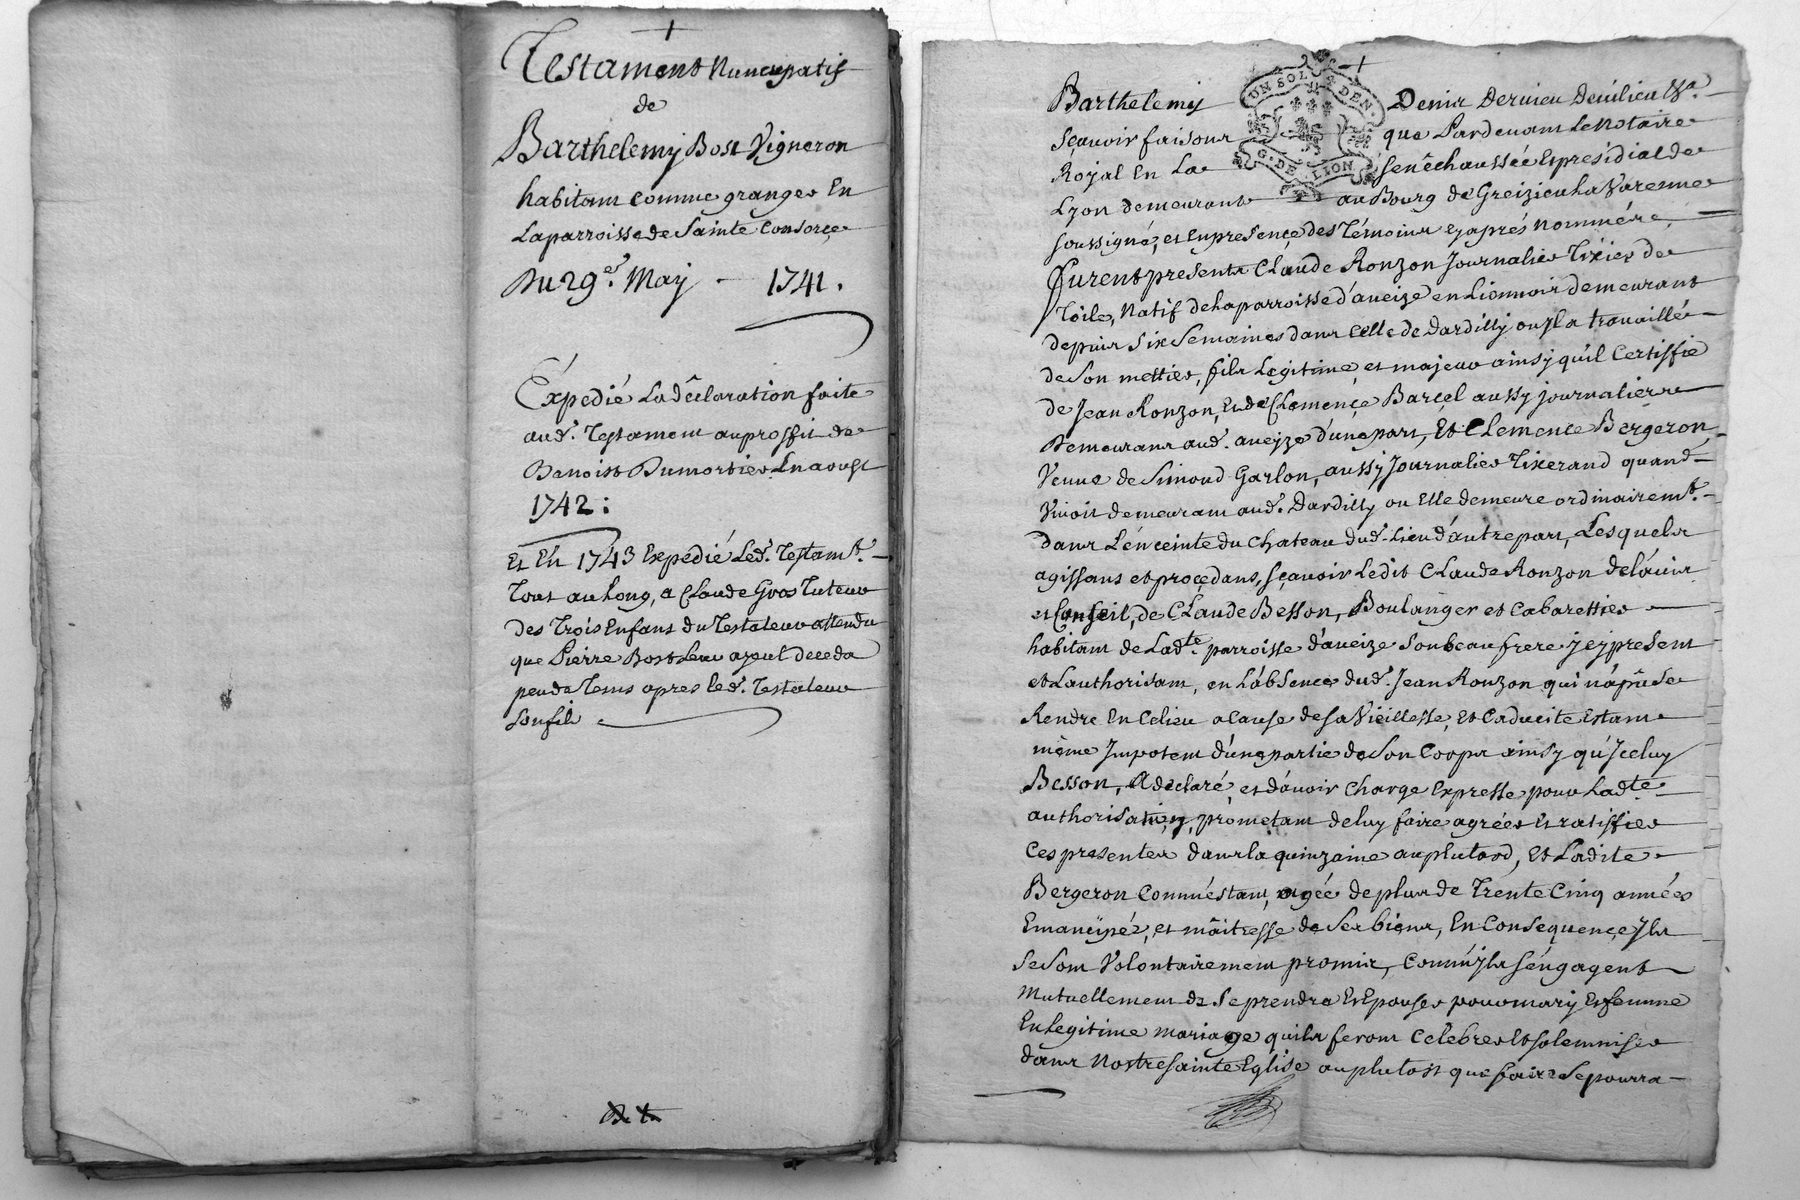 Testament Nuncupatif
de
Barthelemy Bost Vigneron
habitant comme granger En
La parroisse de Sainte Consorce
Du 29e. May - 1741.
Expedié La déclaration faite
aud. Testament au proffit de
Benoist Dumortier En aoust
1742:
Et En 1743 Expedié Led. Testamt.
Tout au Long, a Claude Gros Tuteur
des Trois Enfans du Testateur attendu
que Pierre Bost Leur ayeul deceda
peu de Tems apres led. Testateur
Son fils
Barthelemy Denis Dervieu
UN SOL DEN.
G. DE LION
Sçavoir faisons que Pardevant Le Notaire
Royal En La Senêchaussée Et présidial de
Lyon demeurant au Bourg de Greizieu La Varenne
soussigné, et En presence des Témoins cy aprés Nommés,
Furent presents Claude Ronzon Journalier Tixier de
Toile, Natif de La parroisse d'aveize en Lionnois demeurant
depuis Six Semaines dans Celle de Dardilly ou Jl a travaillé
de Son mettier, fils Legitime, et majeur ainsy qu'il Certiffie
de Jean Ronzon, Et de Clemence Barcel aussy journaliers
Demeurans aud. aveyze d'une part, Et Clemence Bergeron,
Veuve de Simond Garlon, aussy Journalier Tixerand quand
Vivoit demeurant aud. Dardilly ou Elle demeure ordinairemt.
dans L'énceinte du Chateau dud. Lieu d'autre part, Lesquels
agissans et procedans, sçavoir Ledit Claude Ronzon de L'ávis
et Conseil, de Claude Besson, Boulanger et Cabarettier
habitant de Ladte. parroisse d'aveize Son beaufrere jcy present
et L'authorisant, en L'ábsence dud. Jean Ronzon qui n'a pû Se
Rendre En Ce Lieu a Cause de sa Vieillesse, Et Caducité Estant
même Jmpotent d'une partie de Son Corps ainsy qu'Jceluy
Besson, A declaré, et d'ávoir Charge Expresse pour Ladte.
authorisation, prometant de luy faire agréer Et ratiffier
Ces presentes dans la quinzaine au plutard, Et Ladite
Bergeron Comm'éstant, agée de plus de Trente Cinq années
Emancipée, et mâitresse de Ses biens, En Consequence Jls
Se Sont Volontairement promis, Comm'Jls s'éngagent
Mutuellement de Se prendre Et Epouser pour mary Et femme
En Legitime mariage qu'ils feront Celebrer Et solemniser
dans Nostre Sainte Eglise au plutost que faire Se pourra